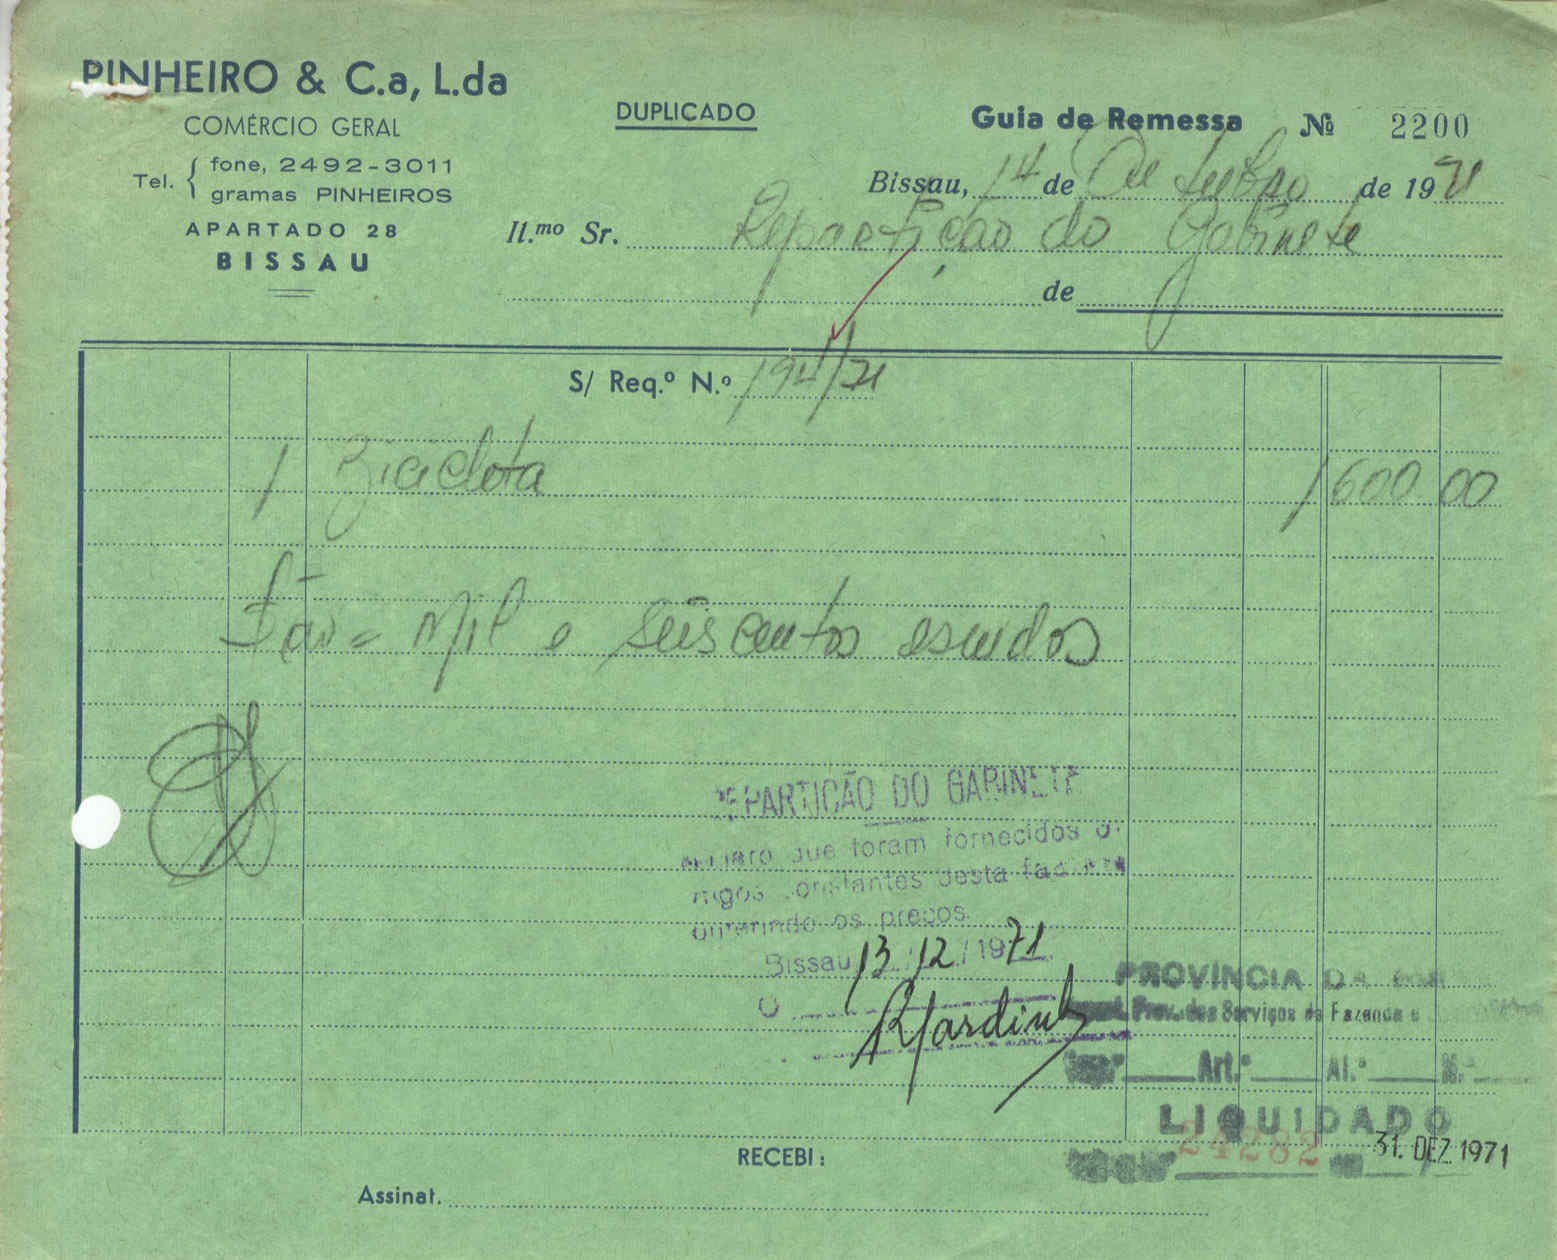 PINHEIRO & C.a, L.da
COMÉRCIO GERAL
Tel. fone, 2492-3011
gramas PINHEIROS
APARTADO 28
BISSAU
DUPLICADO
Guia de Remessa № 2200
Bissau, 14 de Outubro de 1971
Il.mo Sr. Repartição do Gabinete
de
S/ Req.º N.º 194/71
1 Bicicleta 1600 00
São = Mil e seiscentos escudos
REPARTIÇÃO DO GABINETE
que foram fornecidos
constantes desta
os preços
Bissau 13/12/1971
O
PROVINCIA DA
Prov. dos Serviços de Fazenda e
Art.º Al.ª N.º
LIQUIDADO
24282 31. DEZ 1971
RECEBI:
Assinat.